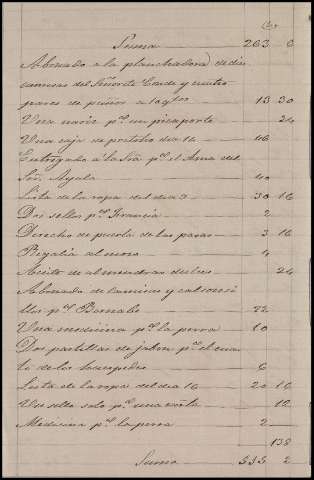 Suma 263 6
Abonado a la planchadora de dies
camisas del Señorito Conde y cuatro
pares de puños a 10 qtos 13 30
Una nariz pa. un picaporte 24
Una caja de pretolio dia 14 46
Entregado a la Sra. pa. el Ama del
Sor. Ayala 40
Lista de la ropa del dia 9 30 16
Dos sellos pa. Francia 2
Derecho de puerta de las pasas 3 16
Regalia al mozo 4
Aceite de almendras dulces 24
Abonado de camisas y calsonci
llos pa. Bernabe 72
Una medicina pa. la perra 10
Dos pastillas de jabon pa. el cua
to de los huespedes 6
Lista de la ropa del dia 16 20 16
Un sello solo pa. una carta 12
Medicina pa. la perra 2
138
Suma 535 2